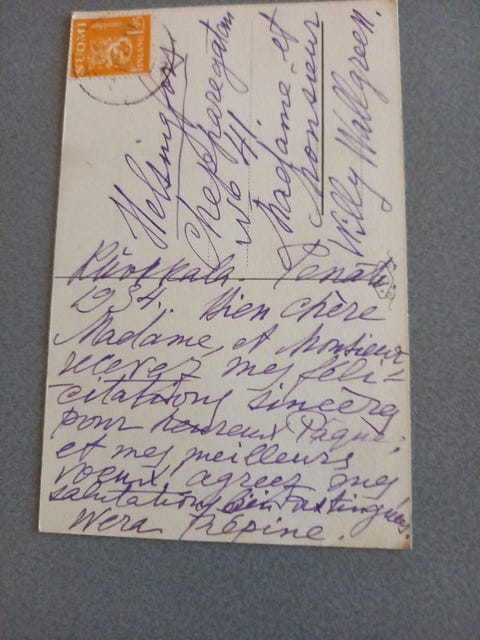 SUOMI
FINLAND
Helsingfors
Chepparegatan
No 41.
Madame et
Monsieur
Willy Wallgreen.
Kuokkala. Penati
1934. Bien chère
Madame, et Monsieur
recevez mes féli=
citations sincères
pour heureux Pâque,
et mes meilleurs
voeux agréez mes
salutations
Wera Répine.